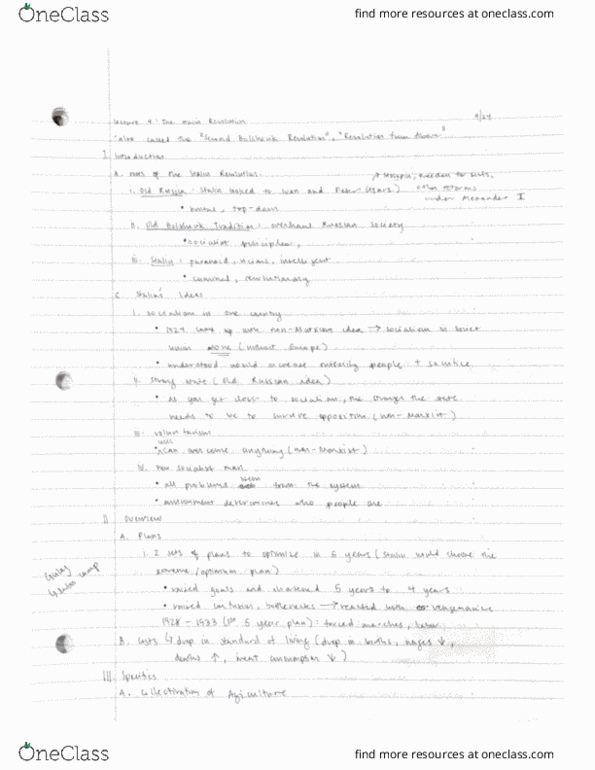 OneClass
find more resources at oneclass.com
Lecture 4: The Revolution 9/24
"also called the "Second Bolshevik Revolution", "Revolution from Above"
I. Introduction
A. roots of the Stalin Revolution
i. Old Russia: Stalin looked to Ivan and Peter (tsars)
under Alexander I
• brutal, top-down
ii. Old Bolshevik Tradition: overhaul Russian society
• socialist principles,
iii. Stalin: paranoid, vicious, intelligent
• criminal, revolutionary
C. Stalin's Ideas
i. socialism in one country
• 1924 came up with non-Marxian idea → socialism in Soviet
Union alone (without Europe)
• understood would people + sacrifice
ii. strong state (Old Russian idea)
• as you get closer to socialism, the stronger the state
needs to be to survive opposition (non-Marxist)
iii. voluntarism
will
• can overcome anything (non-Marxist)
iv. new socialist man
• all problems stem from the system
• environment determines who people are
II. Overview
A. Plans
i. 2 sets of plans to optimize in 5 years (Stalin would choose the
extreme/optimum plan)
Gulag
↳ labor camp
• raised goals and shortened 5 years to 4 years
• bottlenecks → reached with
1928-1933 (1st 5 year plan): forced marches, labor
B. Costs ↳ drop in standard of living (drop in births, wages ↓,
deaths ↑, meat consumption ↓)
III. Specifics
A. Collectivization of Agriculture
OneClass
find more resources at oneclass.com